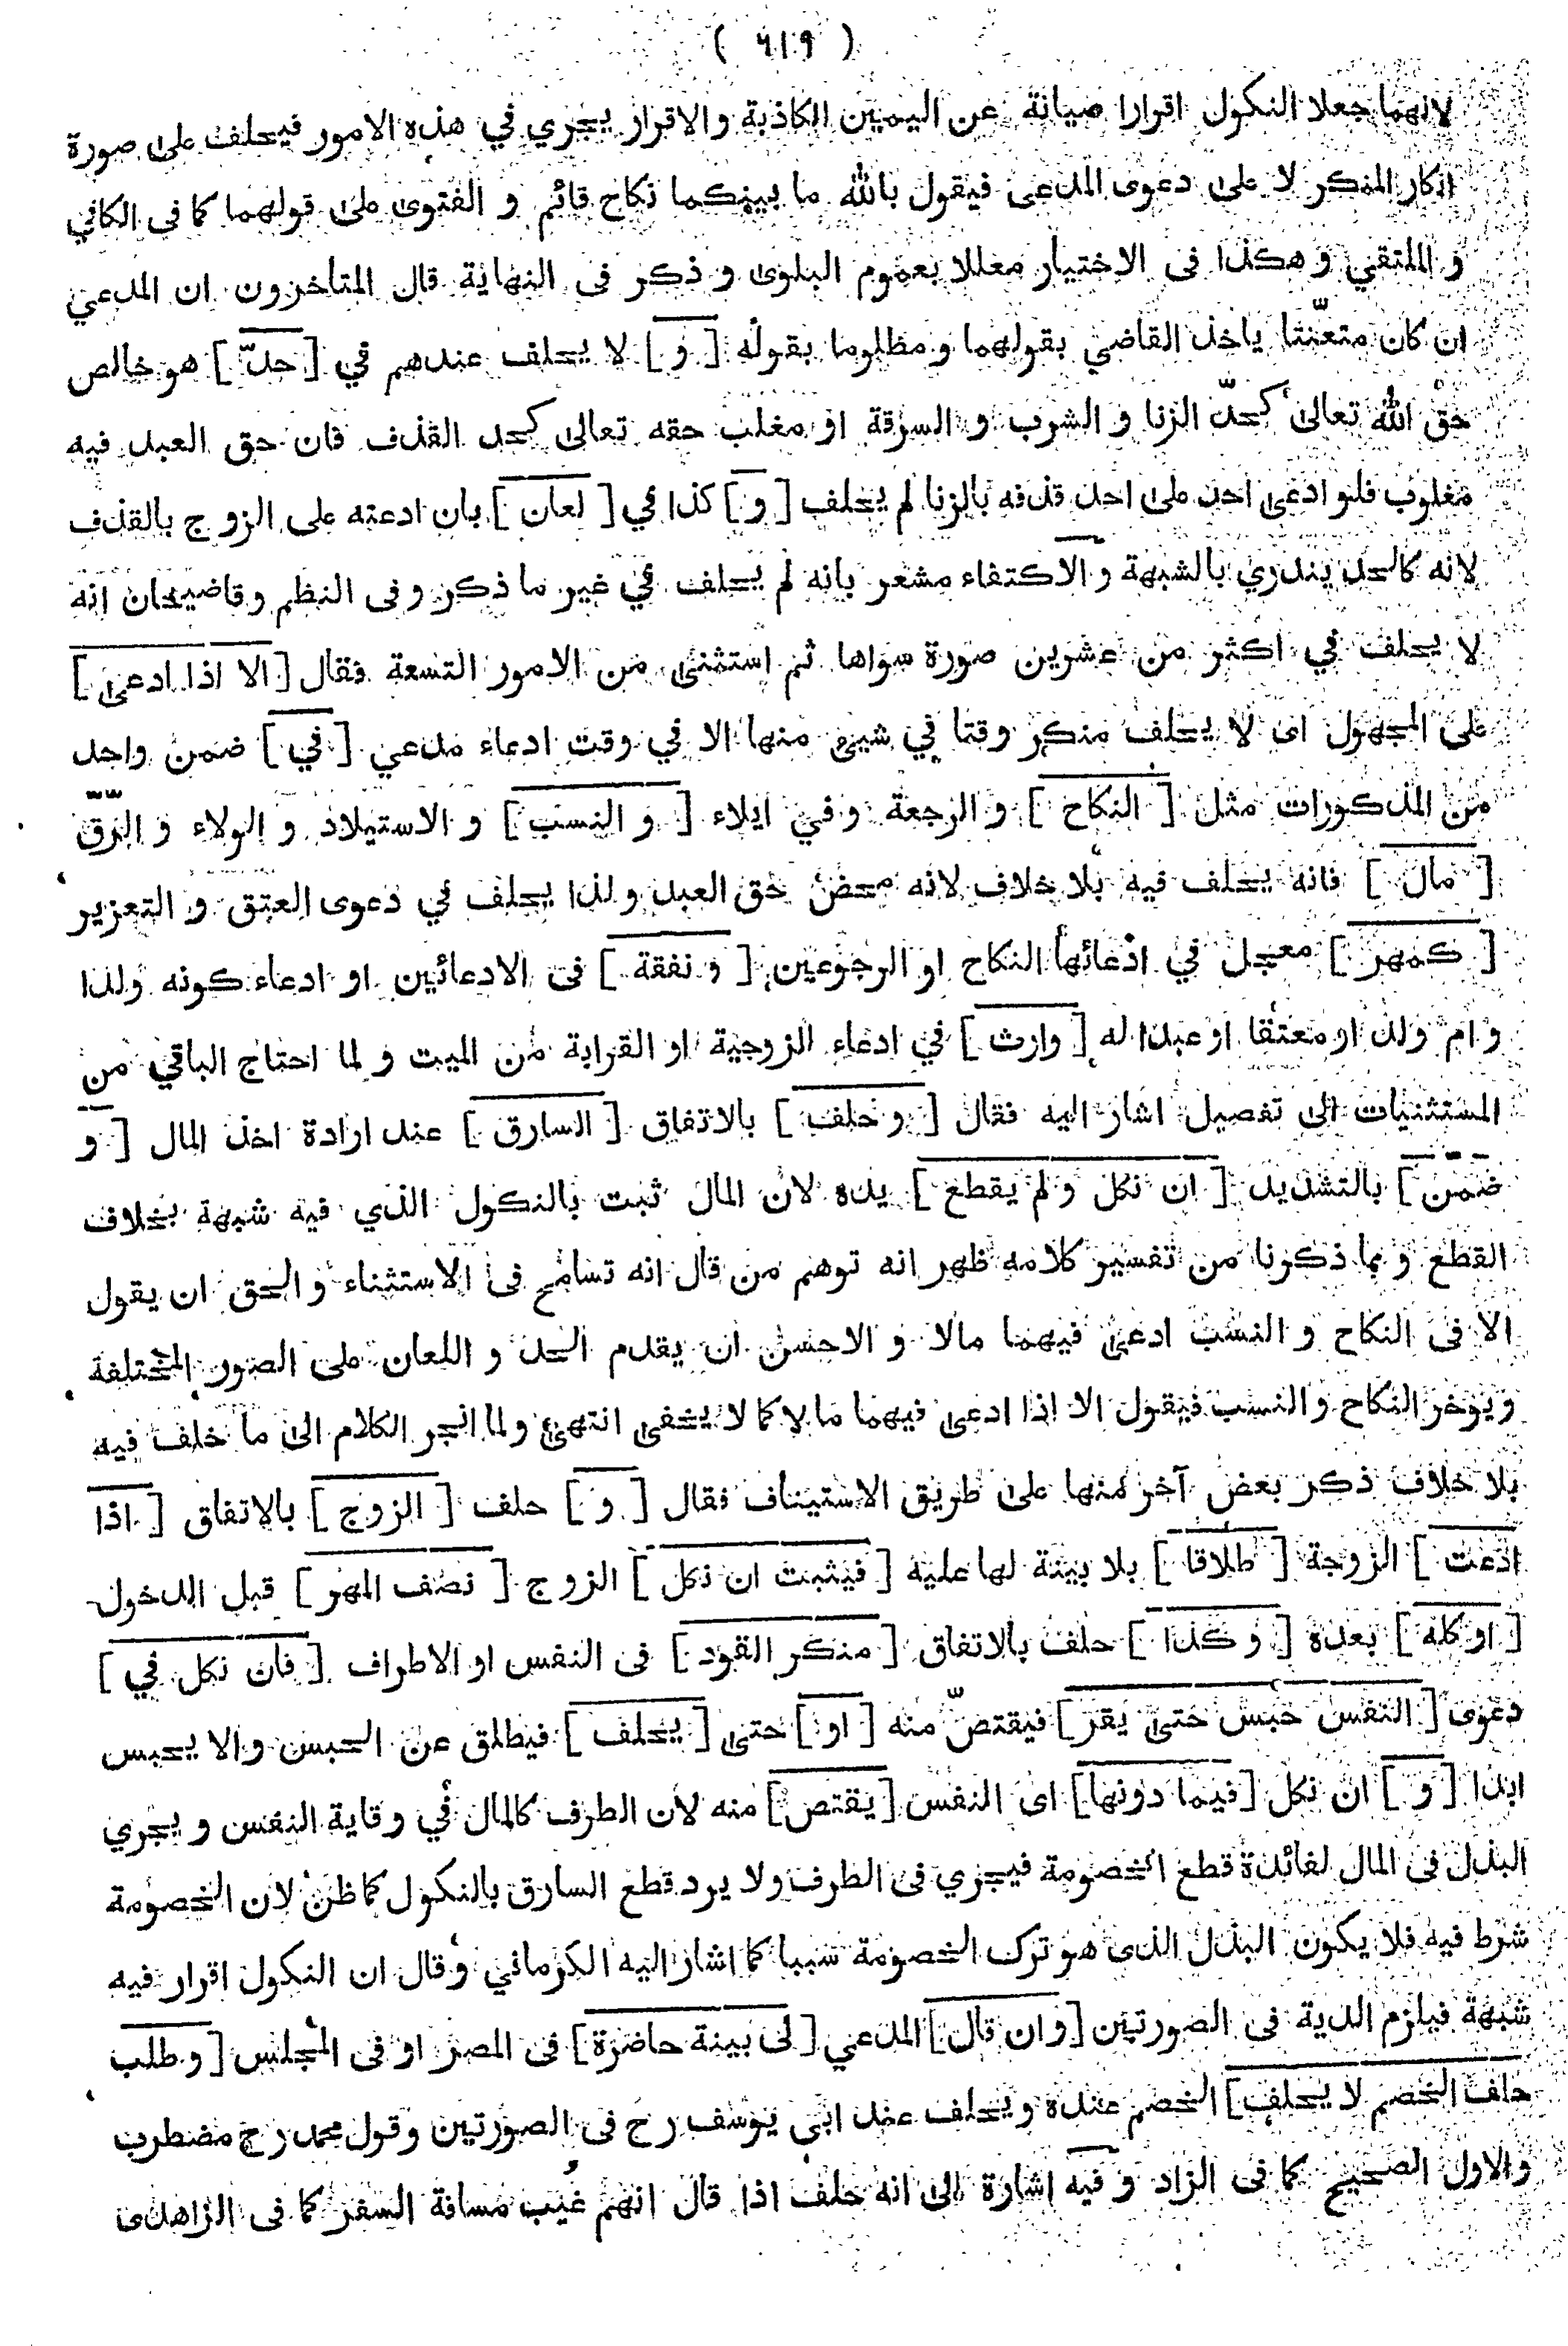 ( ٦١٩ )
لانهما جعلا النكول اقرارا صيانة عن اليمين الكاذبة والاقرار يجري في هذه الامور فيحلف على صورة
انكار المنكر لا على دعوى المدعى فيقول بالله ما بينكما نكاح قائم و الفتوى على قولهما كما فى الكافي
و الملتقي و هكذا فى الاختيار معللا بعموم البلوى و ذكر فى النهاية قال المتأخرون ان المدعي
ان كان متعنّتا ياخذ القاضي بقولهما و مظلوما بقوله [ و ] لا يحلف عندهم في [ حدّ ] هو خالص
حق الله تعالى كحدّ الزنا و الشرب و السرقة او مغلب حقه تعالى كحد القذف فان حق العبد فيه
مغلوب فلو ادعى احد على احد قذفه بالزنا لم يحلف [ و ] كذا في [ لعان ] بان ادعته على الزوج بالقذف
لانه كالحد يندري بالشبهة و الاكتفاء مشعر بانه لم يحلف في غير ما ذكر و فى النظم وقاضيخان انه
لا يحلف في اكثر من عشرين صورة سواها ثم استثنى من الامور التسعة فقال [ الا اذا ادعى ]
على المجهول اى لا يحلف منكر وقتا في شيئ منها الا في وقت ادعاء مدعي [ في ] ضمن واحد
من المذكورات مثل [ النكاح ] و الرجعة و في ايلاء [ و النسب ] و الاستيلاد و الولاء و الرّقّ
[ مال ] فانه يحلف فيه بلا خلاف لانه محض حق العبد ولذا يحلف في دعوى العتق و التعزير
[ كمهر ] معجل في ادعائها النكاح او الرجوعين [ و نفقة ] فى الادعائين او ادعاء كونه ولدا
و ام ولد او معتقا او عبدا له [ وارث ] في ادعاء الزوجية او القرابة من الميت و لما احتاج الباقي من
المستثنيات الى تفصيل اشار اليه فقال [ و حلف ] بالاتفاق [ السارق ] عند ارادة اخذ المال [ و
ضمّن ] بالتشديد [ ان نكل و لم يقطع ] يده لان المال ثبت بالنكول الذي فيه شبهة بخلاف
القطع و بما ذكرنا من تفسير كلامه ظهر انه توهم من قال انه تسامح فى الاستثناء و الحق ان يقول
الا فى النكاح و النسب ادعى فيهما مالا و الاحسن ان يقدم الحد و اللعان على الصور المختلفة
ويوخر النكاح والنسب فيقول الا اذا ادعى فيهما مالا كما لا يخفى انتهى ولما انجر الكلام الى ما حلف فيه
بلا خلاف ذكر بعض آخر منها على طريق الاستيناف فقال [ و ] حلف [ الزوج ] بالاتفاق [ اذا
ادعت ] الزوجة [ طلاقا ] بلا بينة لها عليه [ فيثبت ان نكل ] الزوج [ نصف المهر ] قبل الدخول
[ او كله ] بعده [ و كذا ] حلف بالاتفاق [ منكر القود ] فى النفس او الاطراف [ فان نكل في ]
دعوى [ النفس حبس حتى يقر ] فيقتصّ منه [ او ] حتى [ يحلف ] فيطلق عن الحبس والا يحبس
ابدا [ و ] ان نكل [ فيما دونها ] اى النفس [ يقتص ] منه لان الطرف كالمال في وقاية النفس و يجري
البذل فى المال لفائدة قطع الخصومة فيجزي فى الطرف ولا يرد قطع السارق بالنكول كما ظن لان الخصومة
شرط فيه فلا يكون البذل الذى هو ترك الخصومة سببا كما اشار اليه الكرماني وقال ان النكول اقرار فيه
شبهة فيلزم الدية فى الصورتين [ وان قال ] المدعي [ لى بينة حاضرة ] فى المصر او فى المجلس [ و طلب
حلف الخصم لا يحلف ] الخصم عنده ويحلف عند ابى يوسف رح فى الصورتين وقول محمد رح مضطرب
والاول الصحيح كما فى الزاد و فيه اشارة الى انه حلف اذا قال انهم غيب مسافة السفر كما فى الزاهدى